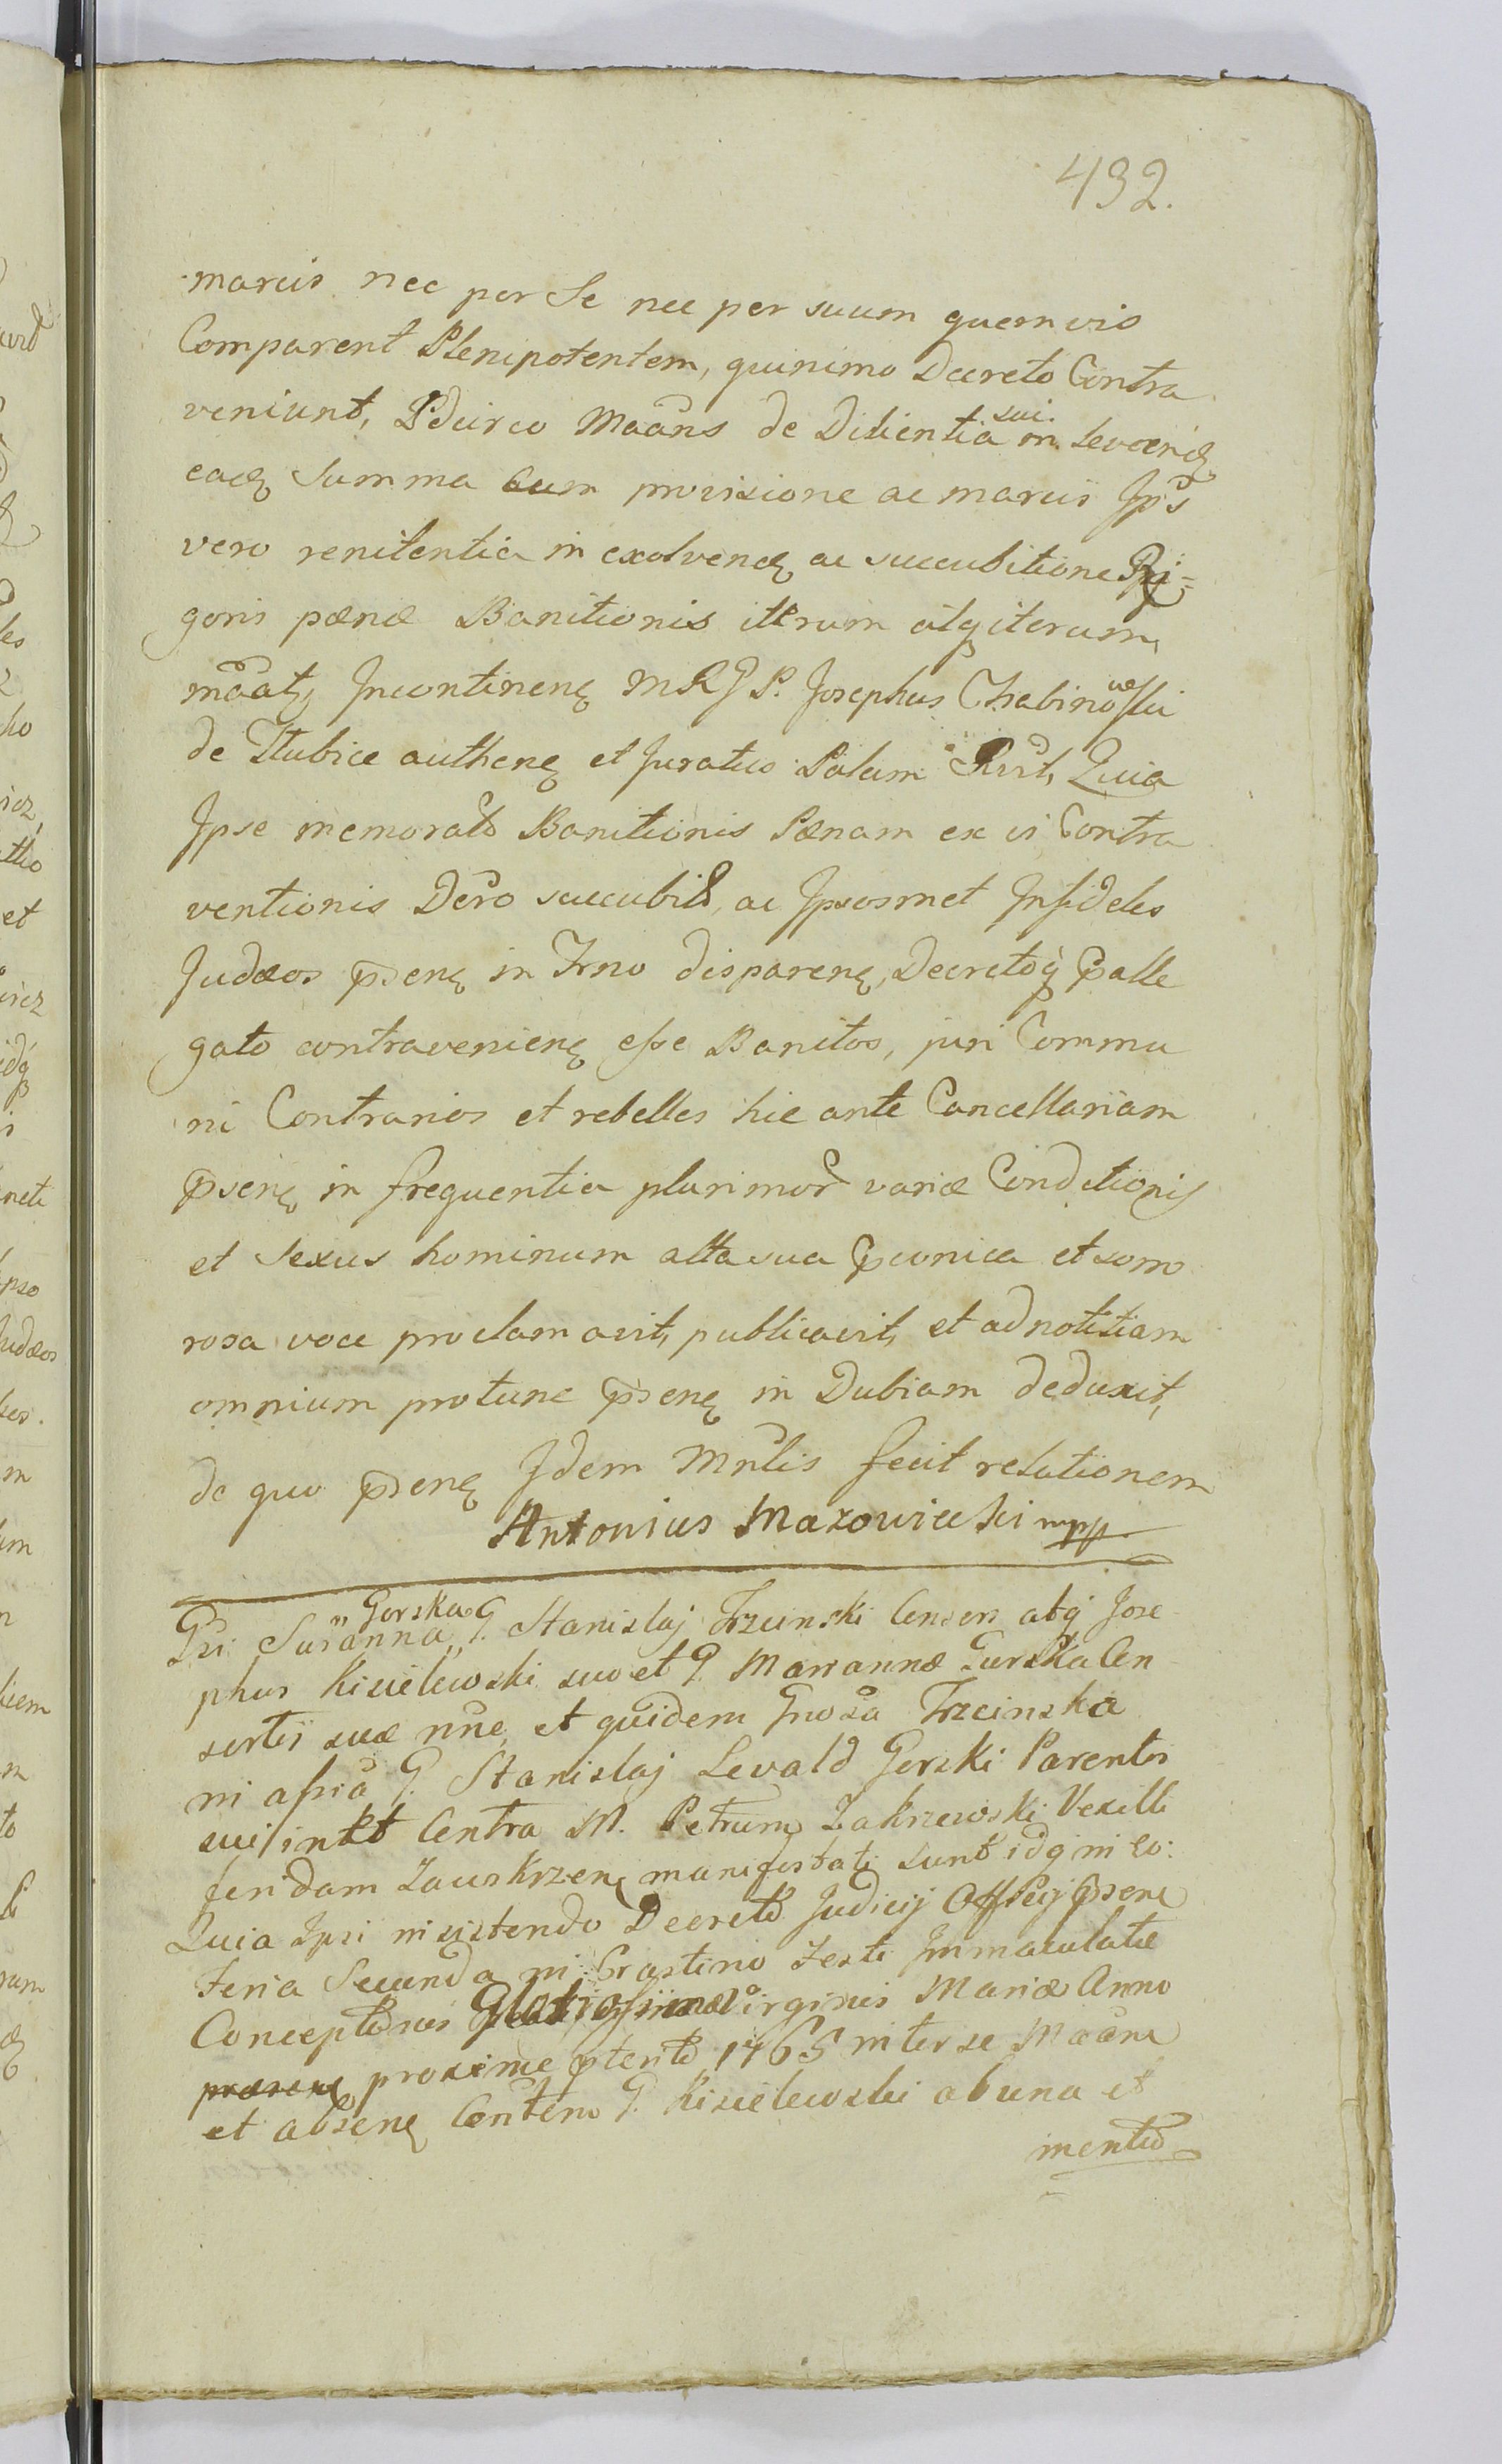 432.
marcis nec per Se nec per suum quemvis
Comparent Plenipotentem, quinimo Decreto Contra
veniunt, Idcirco Maãns de Diligentia sui in levand
ead Summa cum provisione ac marcis Ips
vero renitentia in exolvend ac succubitione Ri=
goris pænæ Banitionis iterum atq iterum
mãat, Incontinen MRGP. Josephus Chabinowski
de Stubice authen et Juratus Palam Rvit, Quia
Ipse memorato Banitionis Pænam ex vi Contra
ventionis Dcro succubit, ac Ipsosmet Infideles
Judæos psen in Trno disparen, Decretoq palle
gato contravenien esse Banitos, juri Commu
ni Contrarios et rebelles hic ante Cancellariam
psen in frequentia plurimor variæ Conditionis
et Sexus hominum alta sua pconica et sono
rosa voce proclamavit, publicavit, et ad notitiam
omnium protunc psen in Dubiam deduxit,
de quo psen Idem Mnlis fecit relationem
Antonius Mazowiecki mpp
Gsi Susanna Gorska G. Stanislaj Trzcinski Consors atq Jose
phus Kisielewski suo et G. Mariannæ Gurska Con
sortis suæ nne, et quidem Gnosa Trzcinska
in assia G. Stanislaj Lewald Gorski Parentis
sui intt Contra M. Petrum Zakrzewski Vexilli
feridam Zauskrzen manifestati sunt idq in eo:
Quia Ipsi insistendo Decreto Judicij Officij psen
Feria Secunda in Crastino Festi Immaculatæ
Conceptionis Gloriosissimæ Virginis Mariæ Anno
præsen proxime pterito 1765 inter se Maãn
et absen Conten G. Kisielewski ab una et
mento